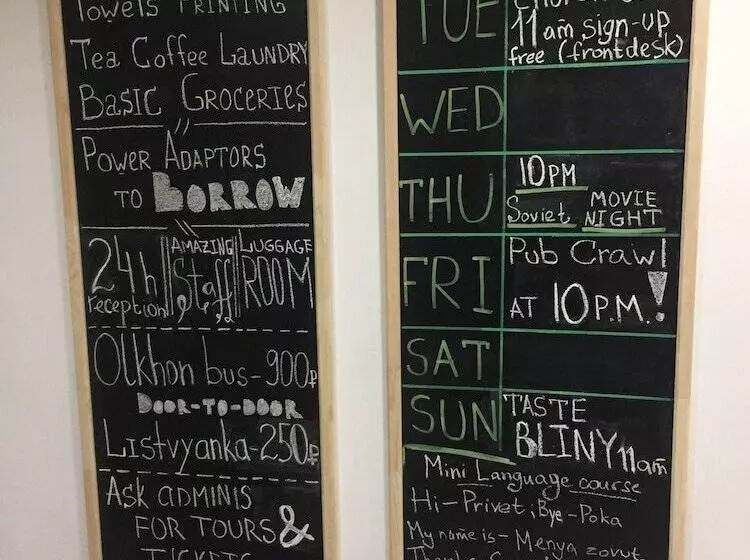 Towels PRINTING
Tea Coffee LAUNDRY
BASIC GROCERIES
POWER ADAPTORS
TO BORROW
24h
reception
AMAZING
Staff
LUGGAGE
ROOM
Olkhon bus-900₽
DOOR-TO-DOOR
Listvyanka-250₽
Ask adminis
FOR TOURS &
TICKETS
TUE
11am sign-up
free (frontdesk)
WED
THU
10PM
Soviet MOVIE
NIGHT
FRI
Pub Crawl
AT 10P.M.!
SAT
SUN
TASTE
BLINY 11am
Mini Language course
Hi-Privet; Bye-Poka
My name is - Menya zovut